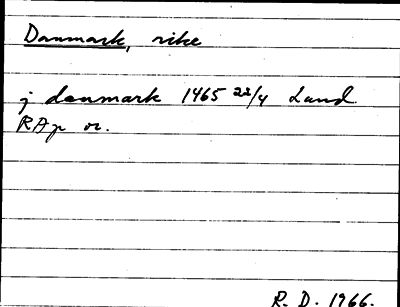 Danmark, rike
j danmark 1465 22/4 Lund
RAp or.
R. D. 1966.